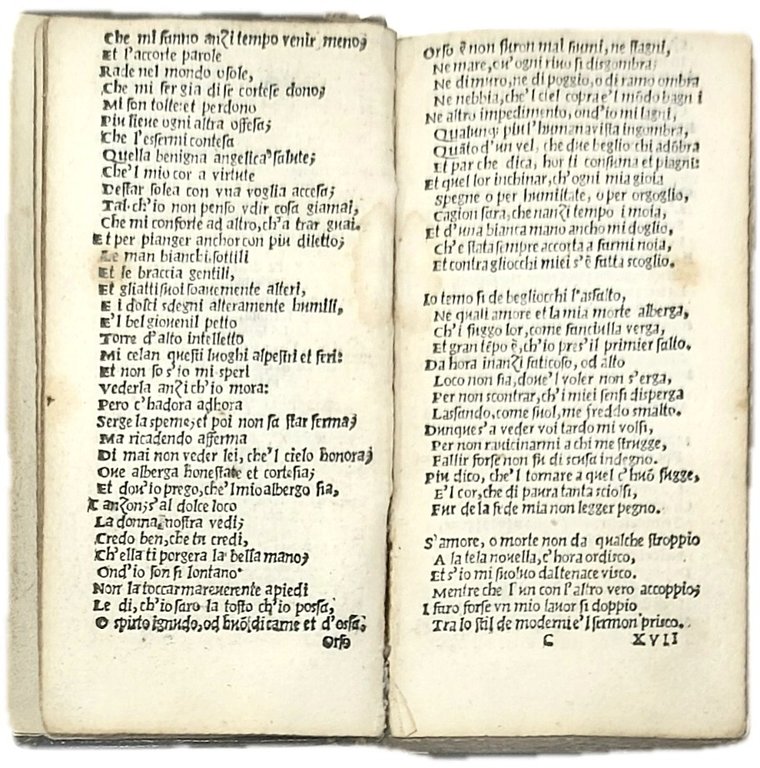 Che mi fanno anzi tempo venir meno;
Et l'accorte parole
Rade nel mondo o sole,
Che mi fer gia di se cortese dono;
Mi son tolte: et perdono
Piu lieue ogni altra offesa;
Che l'essermi contesa
Quella benigna angelica salute;
Che'l mio cor a virtute
Destar solea con vna voglia accesa;
Tal, ch'io non penso vdir cosa giamai,
Che mi conforte ad altro, ch'a trar guai.
Et per pianger anchor con piu diletto;
Le man bianchi sottili
Et le braccia gentili,
Et gliatti suoi soauemente alteri,
E i dolci sdegni alteramente humili,
E'l bel giouenil petto
Torre d'alto intelletto
Mi celan questi luoghi alpestri et feri:
Et non so s'io mi speri
Vederla anzi ch'io mora:
Pero c'hadora adhora
S'erge la speme; et poi non sa star ferma;
Ma ricadendo afferma
Di mai non veder lei, che'l cielo honora;
Oue alberga honestate et cortesia;
Et dou'io prego, che'l mio albergo sia,
Canzon; s'al dolce loco
La donna nostra vedi;
Credo ben, che tu credi,
Ch'ella ti porgera la bella mano;
Ond'io son si lontano
Non la toccar: ma reuerente a piedi
Le di, ch'io saro la tosto ch'io possa,
O spirto ignudo, od huō di carne et d'ossa,
Orso
Orso è non furon mai fiumi, ne stagni,
Ne mare, ou'ogni riuo si disgombra;
Ne di muro, ne di poggio, o di ramo ombra
Ne nebbia, che'l ciel copra e'l mōdo bagni
Ne altro impedimento, ond'io mi lagni,
QualunqƷ piu l'humana vista ingombra,
Quāto d'un vel, che due begliocchi adōbra
Et par che dica, hor ti consuma et piagni:
Et quel lor inchinar, ch'ogni mia gioia
Spegne o per humiltate, o per orgoglio,
Cagion sara, che nanzi tempo i moia,
Et d'una bianca mano ancho mi doglio,
Ch'e stata sempre accorta a farmi noia,
Et contra gliocchi miei s'è fatta scoglio.
Io temo si de begliocchi l'assalto,
Ne quali amore et la mia morte alberga,
Ch'i fuggo lor, come fanciulla verga,
Et gran tēpo è, ch'io pres'il primier salto.
Da hora inanzi faticoso, od alto
Loco non fia, doue'l voler non s'erga,
Per non scontrar, ch'i miei sensi disperga
Lassando, come suol, me freddo smalto.
Dunque s'a veder voi tardo mi volsi,
Per non rauicinarmi a chi me strugge,
Fallir forse non fu di scusa indegno.
Piu dico, che'l tornare a quel c'huō fugge,
E'l cor, che di paura tanta sciolsi,
Fur de la fede mia non legger pegno.
S'amore, o morte non da qualche stroppio
A la tela nouella, c'hora ordisco,
Et s'io mi suoluo dal tenace visco.
Mentre che l'un con l'altro vero accoppio;
I faro forse vn mio lauor si doppio
Tra lo stil de moderni e'l sermon prisco.
C XVII